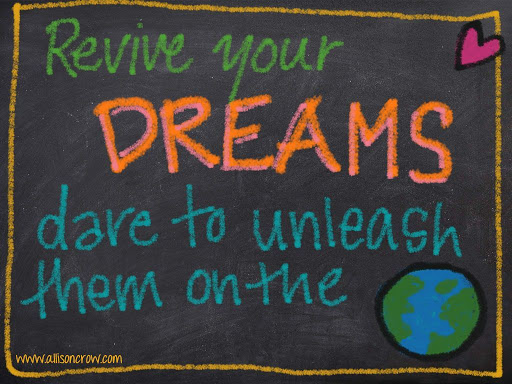 Revive your
DREAMS
dare to unleash
them on the
www.allisoncrow.com